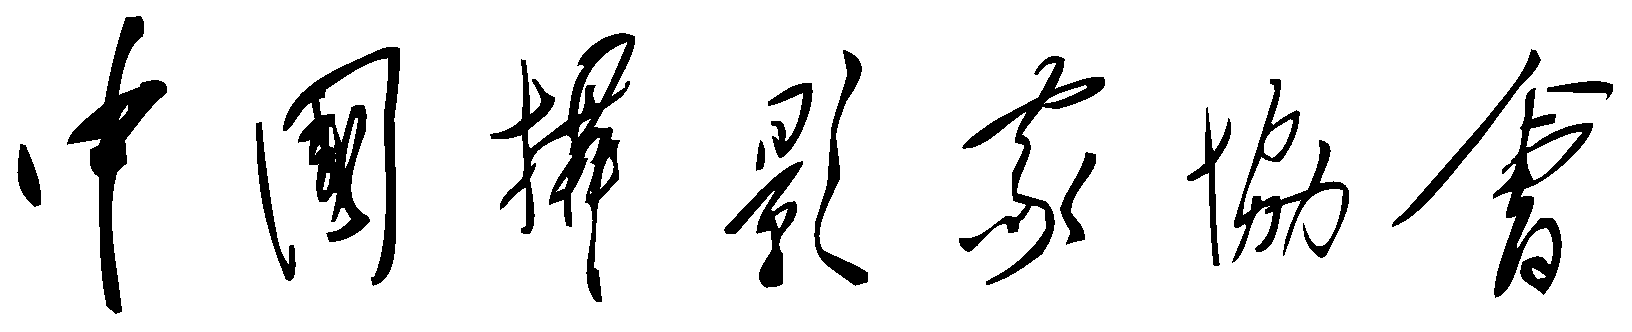 中國攝影家協會